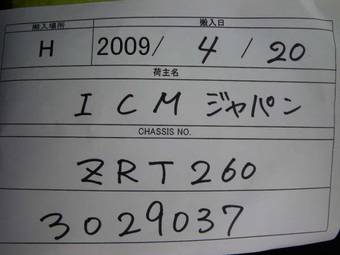 搬入場所 搬入日
H 2009/ 4 / 20
荷主名
ICM ジャパン
CHASSIS NO.
ZRT260
3029037